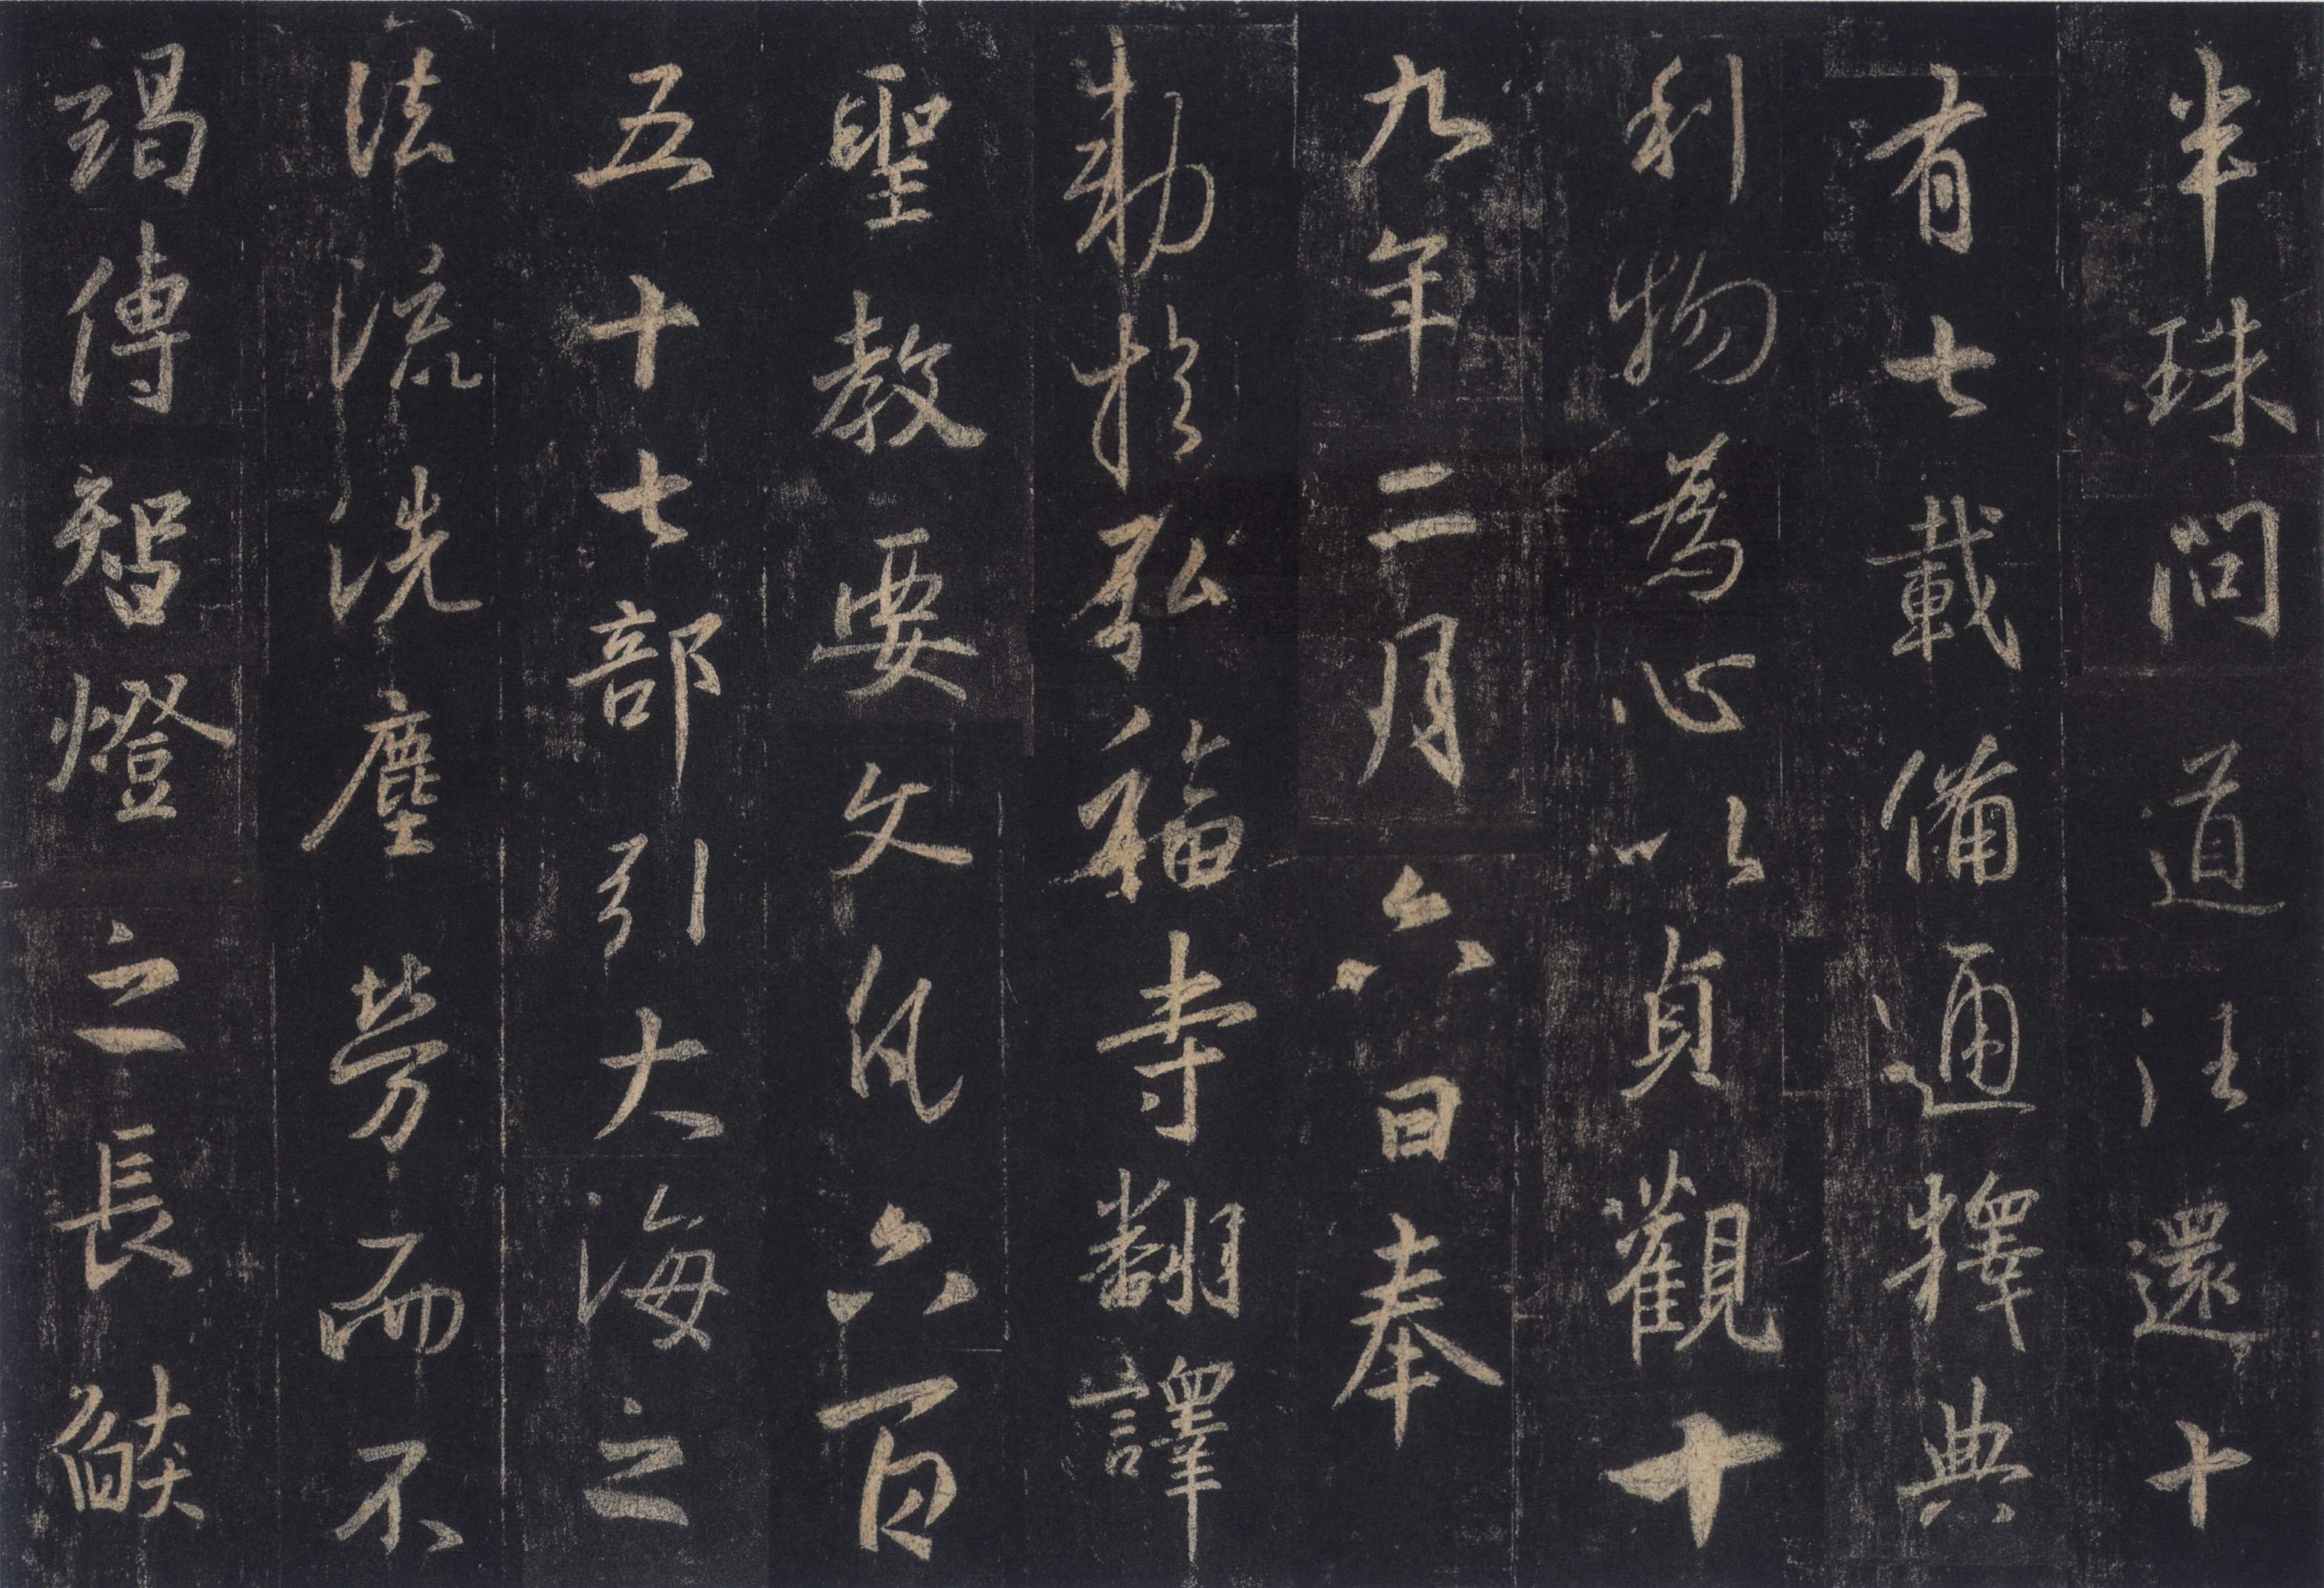 半珠問道往還十
有七載備通釋典
利物爲心以貞觀十
九年二月六日奉
勅於弘福寺翻譯
聖教要文凡六百
五十七部引大海之
法流洗塵勞而不
竭傳智燈之長皦